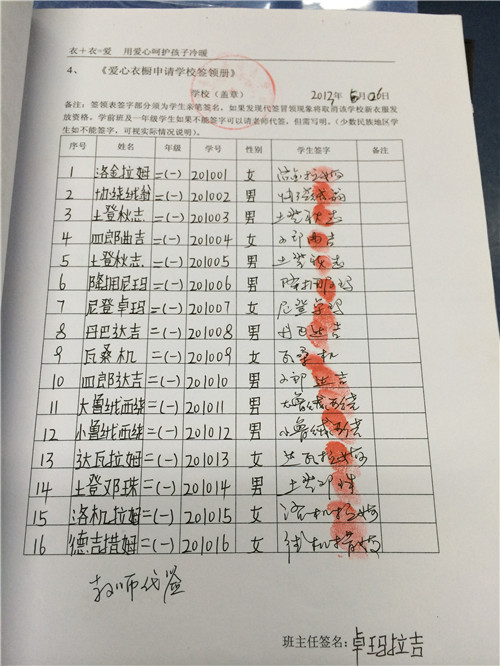 衣+衣=爱 用爱心呵护孩子冷暖
4、 《爱心衣橱申请学校签领册》
学校（盖章） 2013年5月06日
备注：签领表签字部分须为学生亲笔签名，如果发现代签冒领现象将取消该学校新衣服发
放资格。学前班及一年级学生如果不能签字可以请老师代签，但需写明。（少数民族地区学
生如不能签字，可视实际情况说明）。
序号 姓名 年级 学号 性别 学生签字 备注
1 洛金拉姆 二(一) 201001 女 洛金拉姆
2 切绕绒翁 二(一) 201002 男
3 土登秋志 二(一) 201003 男 土登秋志
4 四郎曲吉 二(一) 201004 女 四郎曲吉
5 土登秋志 二(一) 201005 男 土登秋志
6 降拥尼玛 二(一) 201006 男 降拥尼玛
7 尼登卓玛 二(一) 201007 女 尼登卓玛
8 丹巴达吉 二(一) 201008 男 丹巴达吉
9 瓦桑机 二(一) 201009 女 瓦桑机
10 四郎达吉 二(一) 201010 男 四郎达吉
11 大鲁绒西绕 二(一) 201011 男 大鲁绒西绕
12 小鲁绒西绕 二(一) 201012 男 小鲁绒西绕
13 达瓦拉姆 二(一) 201013 女 达瓦拉姆
14 土登邓珠 二(一) 201014 男 土登邓珠
15 洛机拉姆 二(一) 201015 女 洛机拉姆
16 德吉措姆 二(一) 201016 女
教师代签
班主任签名：卓玛拉吉